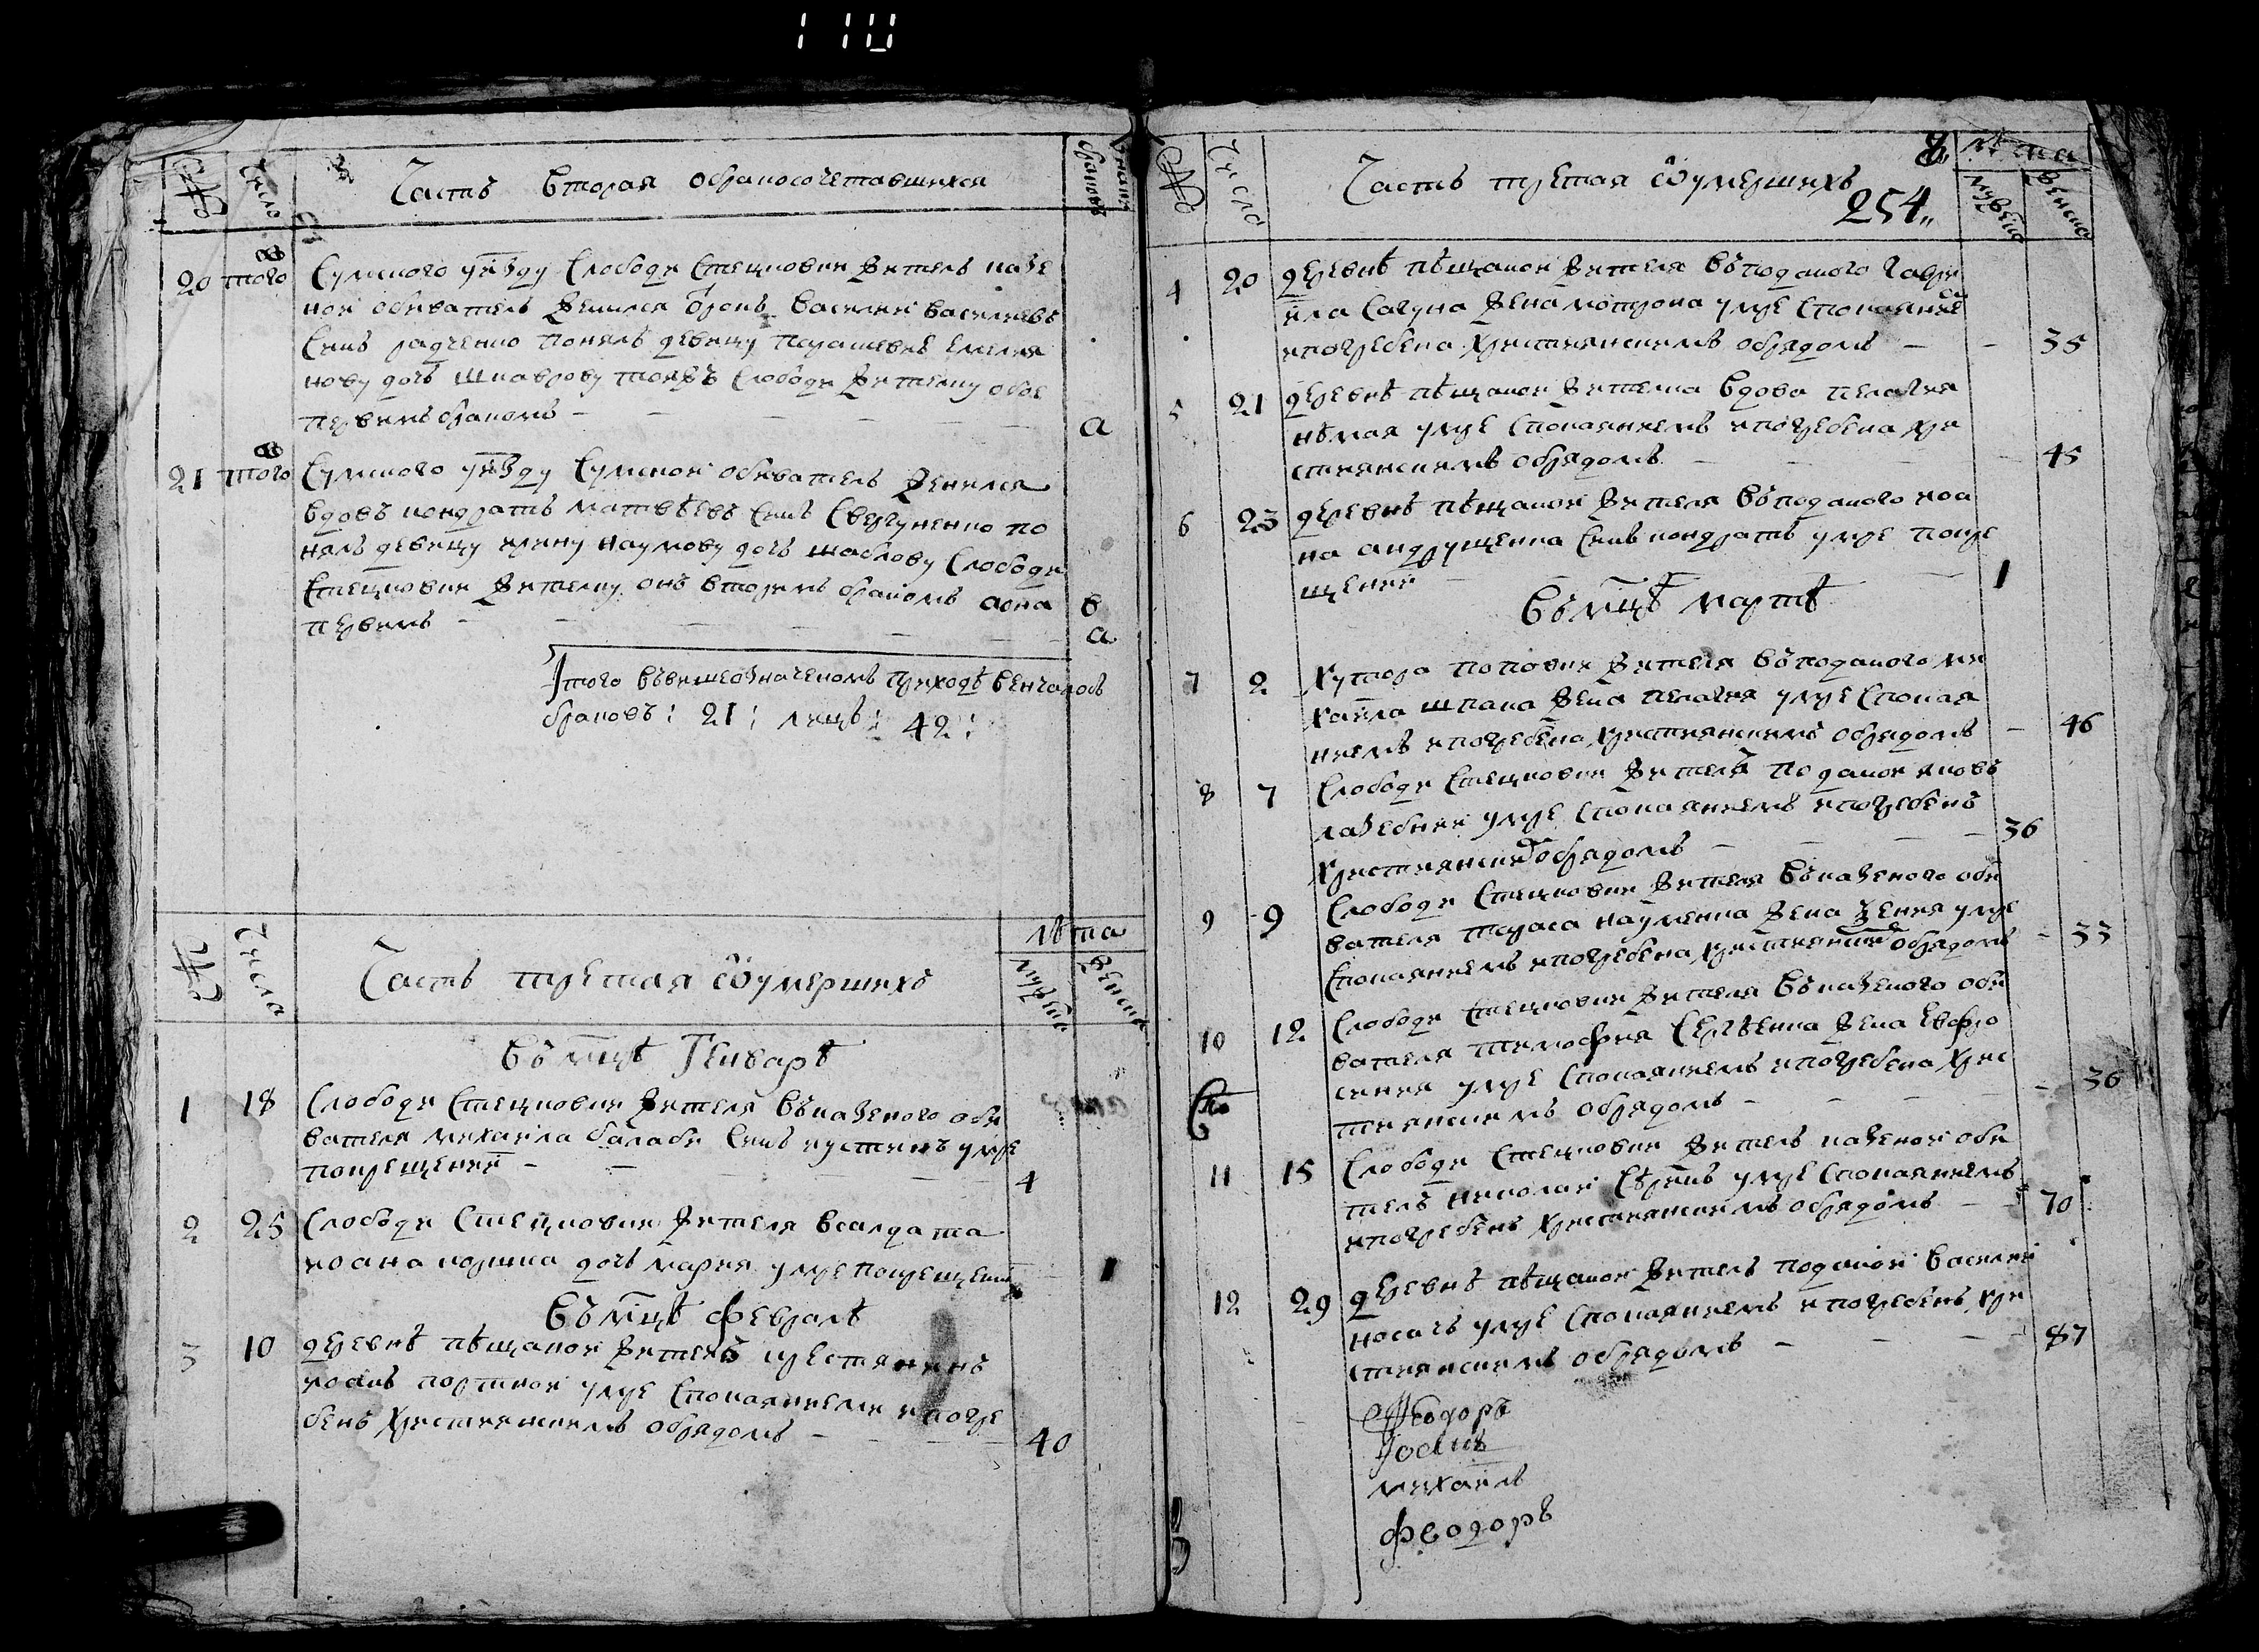 110
№ Числа Часть Вторая обракосочетавшихся браковъ
20 того Сумского уезду Слободи Стецковки жытель казе
ной обыватель женился отрокъ Василий Василиевъ
Синъ радченко понялъ девицу парашевию емелия
нову дочь шкаврову тояжъ Слободи жителку обое
первимъ бракомъ — а
21 того Сумского уезду Сумской обыватель женился
вдовъ кондратъ матвѣевъ Синъ Сверчуненко по
нялъ девицу ирину наумову дочь шаблову Слободи
Стецковки жителку онъ вторимъ бракомъ аона в
первимъ — а
Итого въвишеозначеномъ приходѣ венчалось
браковъ: 21: лицъ: 42:
№ Числа Часть третая оумершихъ лѣта мужеска женска
въ мцѣ Генварѣ
1 18 Слободи Стецковки жителя въказеного обы
вателя михаила балаби Синъ иустинъ умре
покрещении — 4
2 25 Слободи Стецковки жителя всалдата
иоана коршка дочь мария умре покрещении 1
въ мцѣ февралѣ
3 10 деревнѣ пѣщаной житель крестянинъ
иоанъ портной умре Спокаяниемъ ипогре
бенъ християнскимъ обрядомъ — 40
№ Числа Часть третая оумершихъ лѣта мужеска женска
8
254
4 20 деревнѣ пѣщаной жителя въподаного гаври
ила Сагуна жена мотрона умре Спокаяниемъ
ипогребена християнскимъ обрядомъ — 35
5 21 деревнѣ пѣщаной жителка вдова пелагия
нѣмая умре Спокаяниемъ ипогребена хри
стиянскимъ обрядомъ — 45
6 23 деревнѣ пѣщаной жителя въподаного иоа
на андрущенка Синъ кондратъ умре покре
щении — 1
въ мцѣ мартѣ
7 2 Хутора поповки жителя въподаного ми
хаила шпака жена пелагия умре Спокая
ниемъ ипогребена християнскимъ обрядомъ — 46
8 7 Слободи Стецковки житель поданой яковъ
лазебний умре Спокаяниемъ ипогребенъ
християнскимъ обрядомъ — 36
9 9 Слободи Стецковки жителя въказеного обы
вателя тараса науменка жена ксения умре
Спокаяниемъ ипогребена християнскимъ обрядомъ — 33
10 12 Слободи Стецковки жителя въказеного обы
вателя тимофея Сергѣенка жена Евфро
сения умре Спокаяниемъ ипогребена хрис
тиянскимъ обрядомъ — 36
11 15 Слободи Стецковки житель казеной обы
тель николай Сѣрикъ умре Спокаяниемъ
ипогребенъ християнскимъ обрядомъ — 70
12 29 деревнѣ пѣщаной житель поданой василий
носачъ умре Спокаяниемъ ипогребенъ хри
стиянскимъ обрядомъ — 87
Феодоръ
Иосифъ
михаилъ
феодоръ